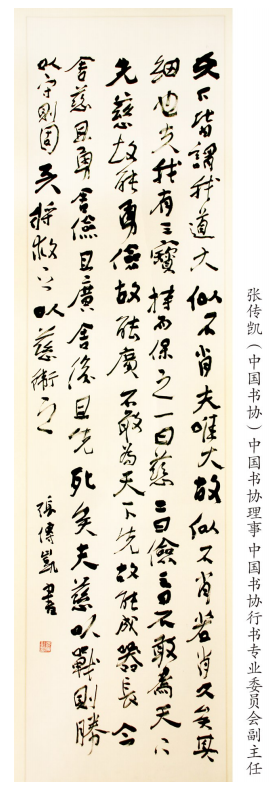 天下皆謂我道大似不肖夫唯大故似不肖若肖久矣其
細也夫我有三寶持而保之一曰慈二曰儉三曰不敢為天下
先慈故能勇儉故能廣不敢為天下先故能成器長今
舍慈且勇舍儉且廣舍後且先死矣夫慈以戰則勝
以守則固天將救之以慈衛之
張傳凱書
张传凯（中国书协）中国书协理事 中国书协行书专业委员会副主任